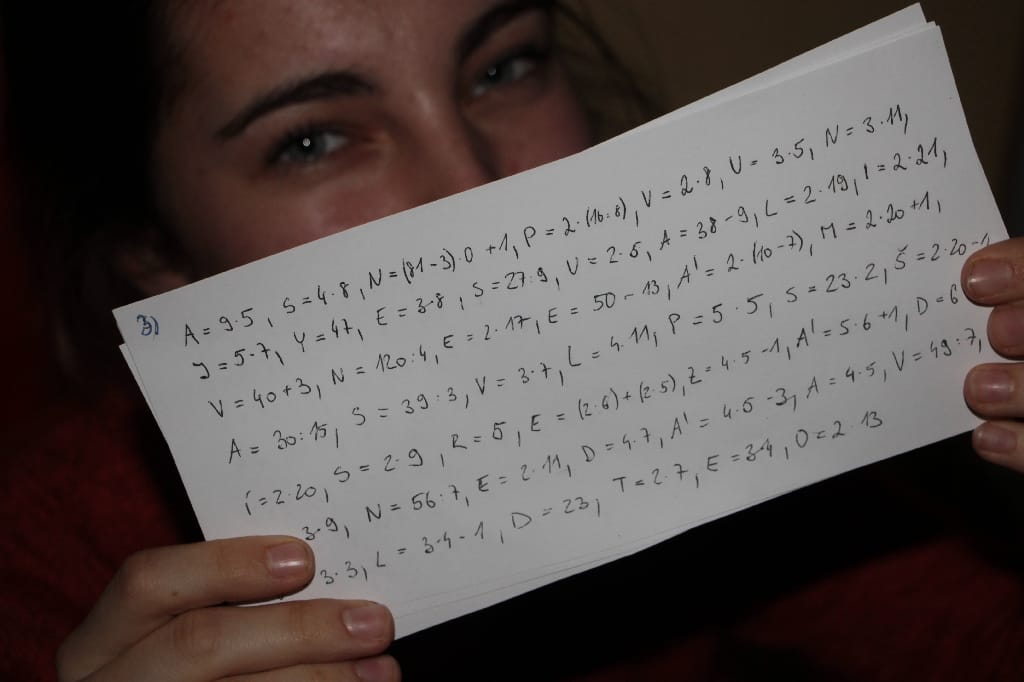 3) A = 9·5, S = 4·8, N = (81-3)·0 +1, P = 2·(16:8), V = 2·8, U = 3·5, N = 3·11,
J = 5·7, Y = 47, E = 3·8, S = 27:9, U = 2·5, A = 38-9, L = 2·19, I = 2·21,
V = 40+3, N = 120:4, E = 2·17, E = 50-13, A' = 2·(10-7), M = 2·20+1,
A = 30:15, S = 39:3, V = 3·7, L = 4·11, P = 5·5, S = 23·2, Š = 2·20-1
í = 2·20, S = 2·9, R = 5, E = (2·6)+(2·5), Z = 4·5-1, A' = 5·6+1, D = 6
3·9, N = 56:7, E = 2·11, D = 4·7, A' = 4·5-3, A = 4·5, V = 49:7,
3·3, L = 3·4-1, D = 23, T = 2·7, E = 34, O = 2·13